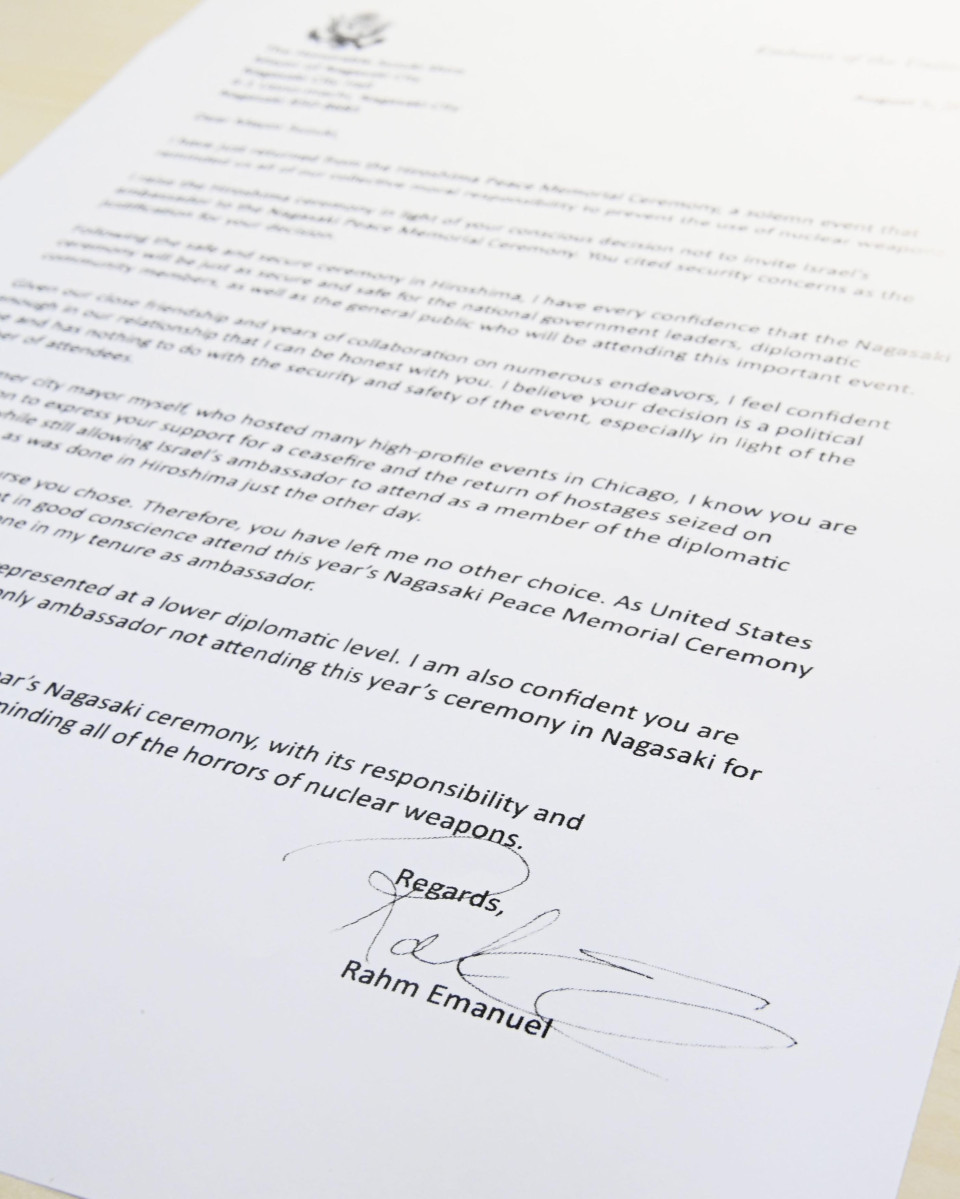 Embassy of the United
August
The Honorable Suzuki Shiro
Mayor of Nagasaki City
Nagasaki City Hall
Nagasaki City
Nagasaki
Dear Mayor Suzuki,
I have just returned from the Hiroshima Peace Memorial Ceremony, a solemn event that
reminded us all of our collective moral responsibility to prevent the use of nuclear weapons.
I raise the Hiroshima ceremony in light of your conscious decision not to invite Israel's
ambassador to the Nagasaki Peace Memorial Ceremony. You cited security concerns as the
justification for your decision.
Following the safe and secure ceremony in Hiroshima, I have every confidence that the Nagasaki
ceremony will be just as secure and safe for the national government leaders, diplomatic
community members, as well as the general public who will be attending this important event.
Given our close friendship and years of collaboration on numerous endeavors, I feel confident
enough in our relationship that I can be honest with you. I believe your decision is a political
and has nothing to do with the security and safety of the event, especially in light of the
of attendees.
city mayor myself, who hosted many high-profile events in Chicago, I know you are
to express your support for a ceasefire and the return of hostages seized on
while still allowing Israel's ambassador to attend as a member of the diplomatic
as was done in Hiroshima just the other day.
you chose. Therefore, you have left me no other choice. As United States
in good conscience attend this year's Nagasaki Peace Memorial Ceremony
in my tenure as ambassador.
represented at a lower diplomatic level. I am also confident you are
only ambassador not attending this year's ceremony in Nagasaki for
year's Nagasaki ceremony, with its responsibility and
all of the horrors of nuclear weapons.
Regards,
Rahm Emanuel